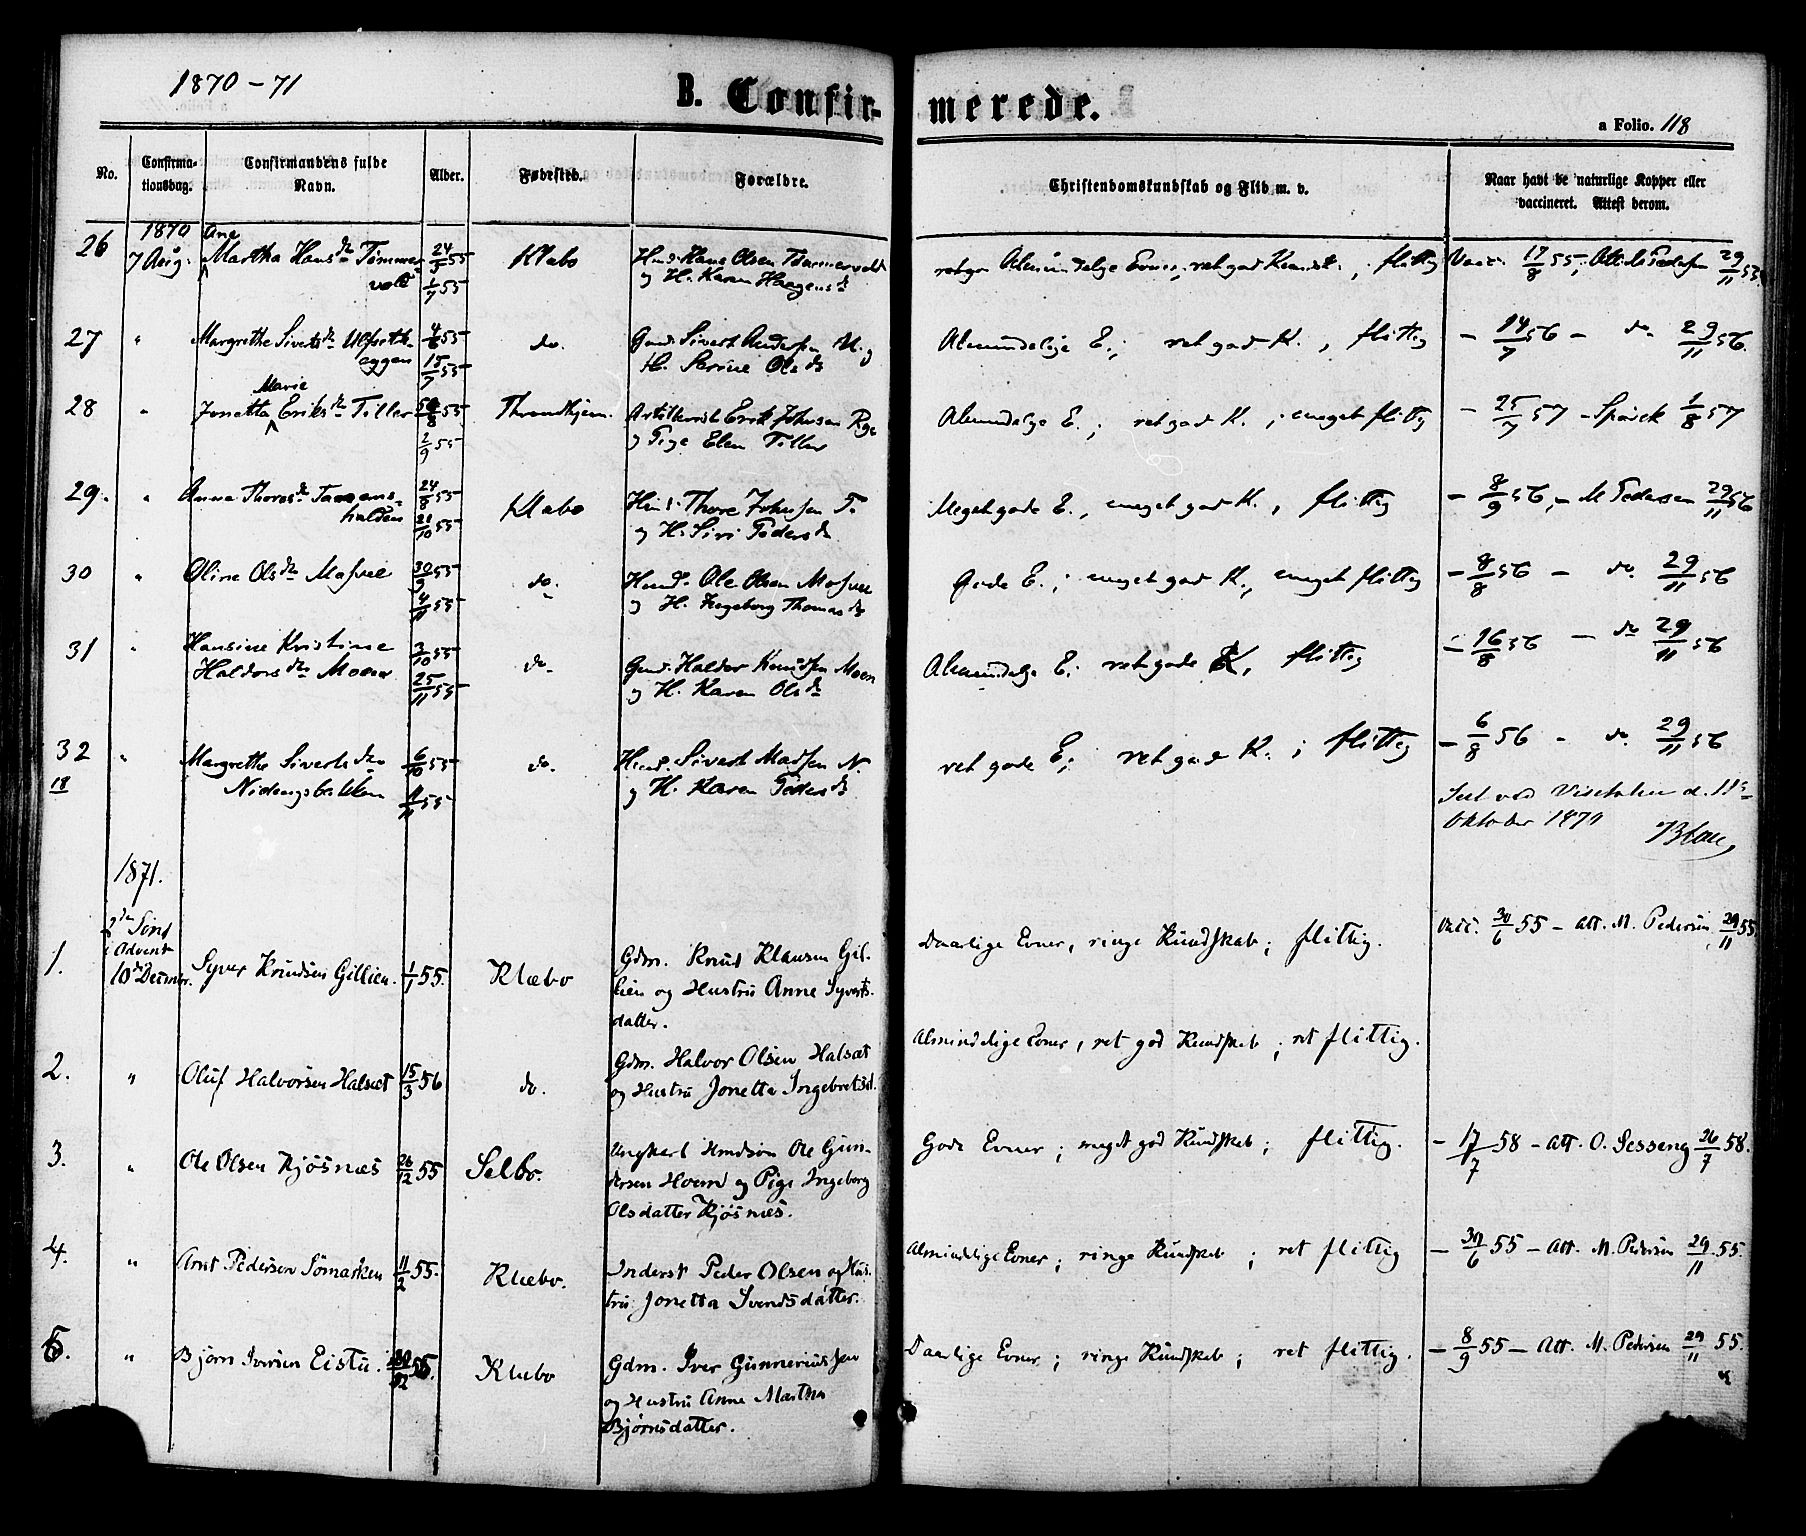 1870-71
B. Confir-
merede.
a Folio. 118
No.
Confirma-
tionsdag.
Confirmandens fulde
Navn.
Alder.
Fødested.
Forældre.
Christendomskundskab og Flid m. v.
Naar havt de naturlige Kopper eller
vaccineret. Attest derom.
1870
26 7 Aug. Ane Martha Hansdr Tømmer-
vold 24/3 55 1/7 55 Klæbo Husm. Hans Olsen Tømmervold
og H. Karen Haagensdr
ret gode Almindelige Evner, ret god Kundsk., flittig Vacc. 17/8 55, Att. M Pedersen 29/11 55
27 " Margrethe Sivertsdr Ulset-
eggen 4/6 55 15/7 55 do. Gmd. Sivert Andersen U. og
H. Serine Olsdr
Almindelige E.; ret god K., flittig - 14/7 56 - do 29/11 56.
28 " Jonetta Marie Eriksdr Tiller 55 2/9 55 Throndhjem. Artillerist Erik Johnsen
og Pige Elen Tiller
Almindelige E.; ret god K.; meget flittig - 25/7 57 - Spørck 1/8 57
29. " Anna Thoresdr
halden 24/8 55 21/10 55 Klæbo Husm. Thore Johnsen T.
og H. Siri Pedersdr
Meget gode E., meget god K., flittig - 8/9 56, - M Pedersen 29/11 56
30 " Oline Olsdr Mosvee 30/9 55 4/11 55 do. Husm. Ole Olsen Mosvee
og H. Ingeborg Thomasdr
Gode E.; meget god K., meget flittig - 8/8 56 - do. 29/11 56
31 " Hansine Kristine
Haldorsdr Moen 3/10 55 25/11 55 do. Gmd. Haldor Knudsen Moen
og H. Karen Olsdr
Almindelige E. ret gode K, flittig - 16/8 56 - do 29/11 56
32 " Margrethe Sivertsdr
18 Nidengsbakken 6/10 55 11/11 55 do. Husm. Sivert Madsen N.
og H. Karen Pedersdr
ret gode E; ret god K.; flittig - 6/8 56 - do. 29/11 56
Seet ved Visitatsen d. 11te
Oktober 1870
1871.
2den Sønd
i Advent
10de Decmbr.
1. Syver Knudsen Gillien. 1/1 55. Klæbo Gdm. Knud Klausen Gil-
lien og Hustru Anne Syverts-
datter.
Daarlige Evner, ringe Kundskab; flittig. Vacc. 30/6 55 - att. M. Pedersen 29/11 55
2. " Oluf Halvorsen Halsæt 15/3 56 do. Gdm. Halvor Olsen Halsæt
og Hustru Jonetta Ingebretsd.
Almindelige Evner, ret god Kundskab; ret flittig.
3. " Ole Olsen Kjøsnæs 26/12 55 Selbo. Ungkarl Ole Gun-
dersen Hoem og Pige Ingeborg
Olsdatter Kjøsnæs.
Gode Evner; meget god Kundskab; flittig. - 17/7 58 - att. O. Sesseng 26/7 58.
4. " Arnt Pedersen Sømarken 11/2 55. Klæbo. Inderst Peder Olsen og Hus-
tru Jonetta Svendsdatter.
Almindelige Evner; ringe Kundskab; ret flittig - 30/6 55 - Att. M. Pedersen 29/11 55.
5. " Bjørn Iversen Eistu. 55. Klæbo Gdm. Iver Gunneriussen
og Hustru Anne Martha
Bjørnsdatter.
Daarlige Evner; ringe Kundskab; ret flittig. - 8/9 55 - Att. M. Pedersen 29/11 55.